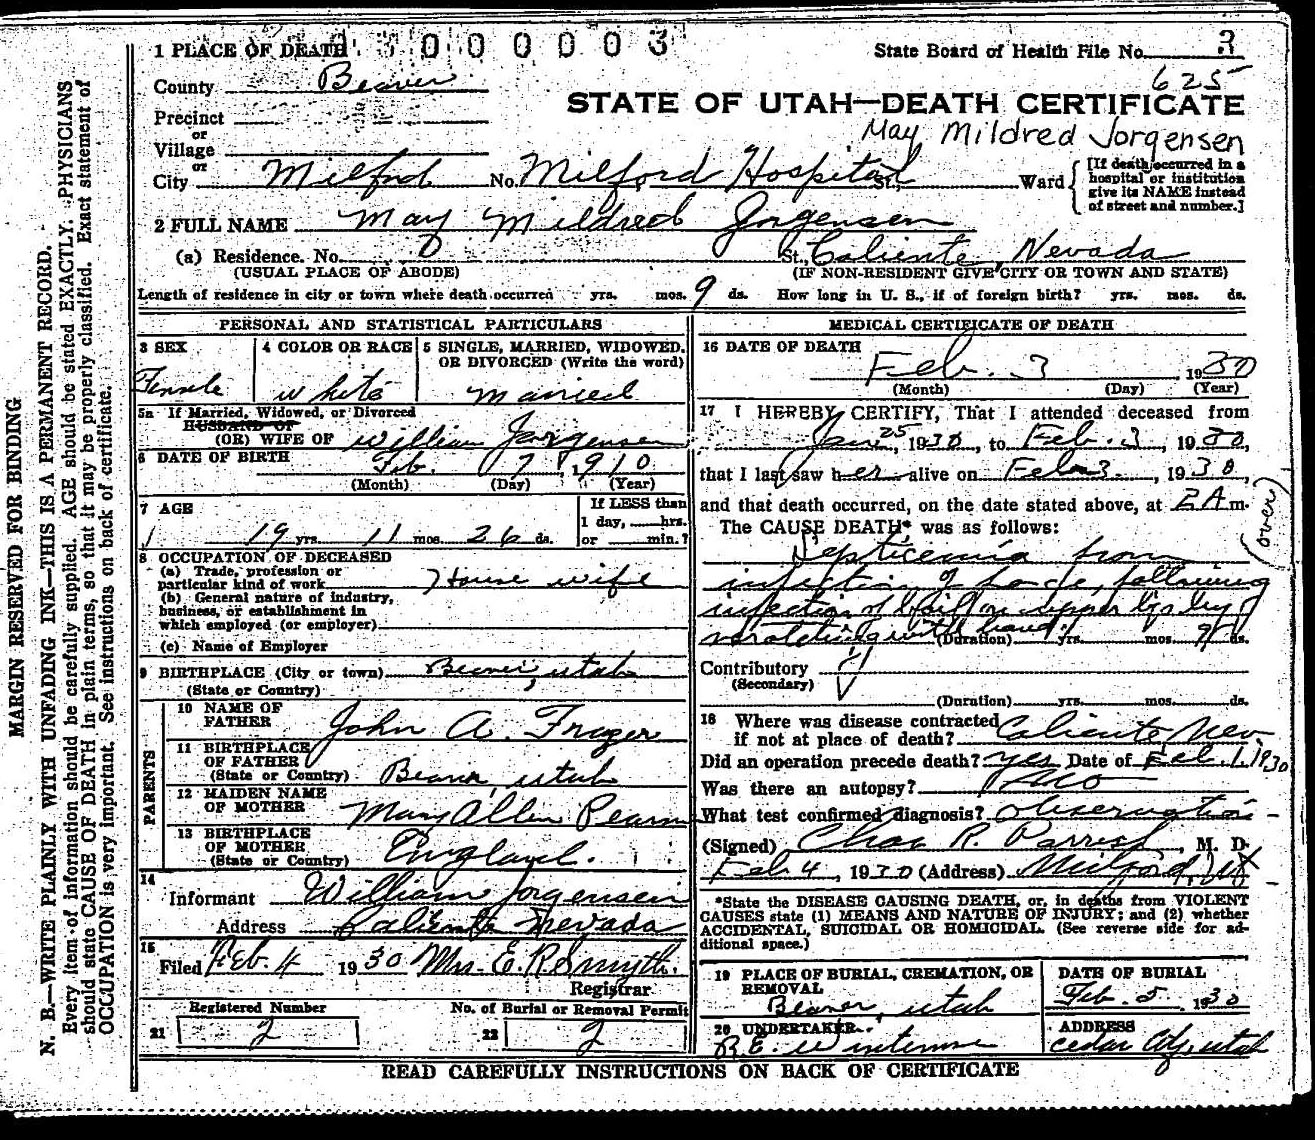 1 PLACE OF DEATH 3 0 0 0 0 0 3
State Board of Health File No. 3
County Beaver
625
STATE OF UTAH—DEATH CERTIFICATE
Precinct
or
Village
or
May Mildred Jorgensen
City Milford No. Milford Hospital St., Ward
[If death occurred in a
hospital or institution
give its NAME instead
of street and number.]
2 FULL NAME May Mildred Jorgensen
(a) Residence. No. St., Caliente, Nevada
(USUAL PLACE OF ABODE) (IF NON-RESIDENT GIVE CITY OR TOWN AND STATE)
Length of residence in city or town where death occurred yrs. mos. 9 ds. How long in U. S., if of foreign birth? yrs. mos. ds.
PERSONAL AND STATISTICAL PARTICULARS
3 SEX
Female
4 COLOR OR RACE
white
5 SINGLE, MARRIED, WIDOWED,
OR DIVORCED (Write the word)
Married
5a If Married, Widowed, or Divorced
HUSBAND OF
(OR) WIFE OF William Jorgensen
6 DATE OF BIRTH Feb. 7 1910
(Month) (Day) (Year)
7 AGE
19 yrs. 11 mos. 26 ds.
If LESS than
1 day, hrs.
or min.?
8 OCCUPATION OF DECEASED
(a) Trade, profession or
particular kind of work House wife
(b) General nature of industry,
business, or establishment in
which employed (or employer)
(c) Name of Employer
9 BIRTHPLACE (City or town) Beaver, Utah
(State or Country)
PARENTS
10 NAME OF
FATHER John A. Frazer
11 BIRTHPLACE
OF FATHER
(State or Country) Beaver, Utah
12 MAIDEN NAME
OF MOTHER Mary Allen
13 BIRTHPLACE
OF MOTHER
(State or Country) England.
14
Informant William Jorgensen
Address Caliente Nevada
15
Filed Feb. 4 1930 Mrs. E. R. Smyth.
Registrar
Registered Number
21 2
No. of Burial or Removal Permit
22 2
MEDICAL CERTIFICATE OF DEATH
16 DATE OF DEATH
Feb. 3 1930
(Month) (Day) (Year)
17 I HEREBY CERTIFY, That I attended deceased from
Jan 25, 1930, to Feb. 3, 1930,
that I last saw her alive on Feb 3, 1930,
and that death occurred, on the date stated above, at 2 A m.
The CAUSE DEATH* was as follows:
(over)
Septicemia from
infection of face, following
infection of boil on upper lip by
scratching with hand. (Duration) yrs. mos. 9 ds.
Contributory
(Secondary)
(Duration) yrs. mos. ds.
18 Where was disease contracted
if not at place of death? Caliente Nev
Did an operation precede death? yes Date of Feb. 1, 1930
Was there an autopsy? No
What test confirmed diagnosis? Observation
(Signed) Chas R. Parrish, M. D.
Feb 4, 1930 (Address) Milford, Ut
*State the DISEASE CAUSING DEATH, or, in deaths from VIOLENT
CAUSES state (1) MEANS AND NATURE OF INJURY; and (2) whether
ACCIDENTAL, SUICIDAL OR HOMICIDAL. (See reverse side for ad-
ditional space.)
19 PLACE OF BURIAL, CREMATION, OR
REMOVAL
Beaver, Utah
DATE OF BURIAL
Feb. 5 1930
20 UNDERTAKER
ADDRESS
Cedar City, Utah
READ CAREFULLY INSTRUCTIONS ON BACK OF CERTIFICATE
MARGIN RESERVED FOR BINDING
N. B.—WRITE PLAINLY WITH UNFADING INK—THIS IS A PERMANENT RECORD.
Every item of information should be carefully supplied. AGE should be stated EXACTLY. PHYSICIANS
should state CAUSE OF DEATH in plain terms, so that it may be properly classified. Exact statement of
OCCUPATION is very important. See instructions on back of certificate.